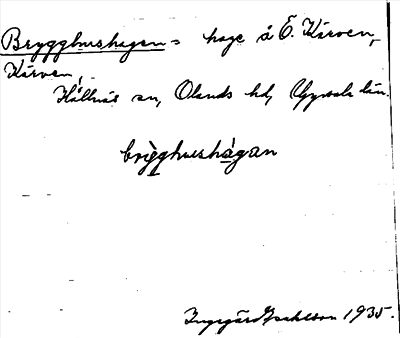 Brygghushagen = hage å Ö. Kärven,
Kärven,
Hållnäs sn, Olands hd, Uppsala län.
brigghushagan
Ingegärd 1935.